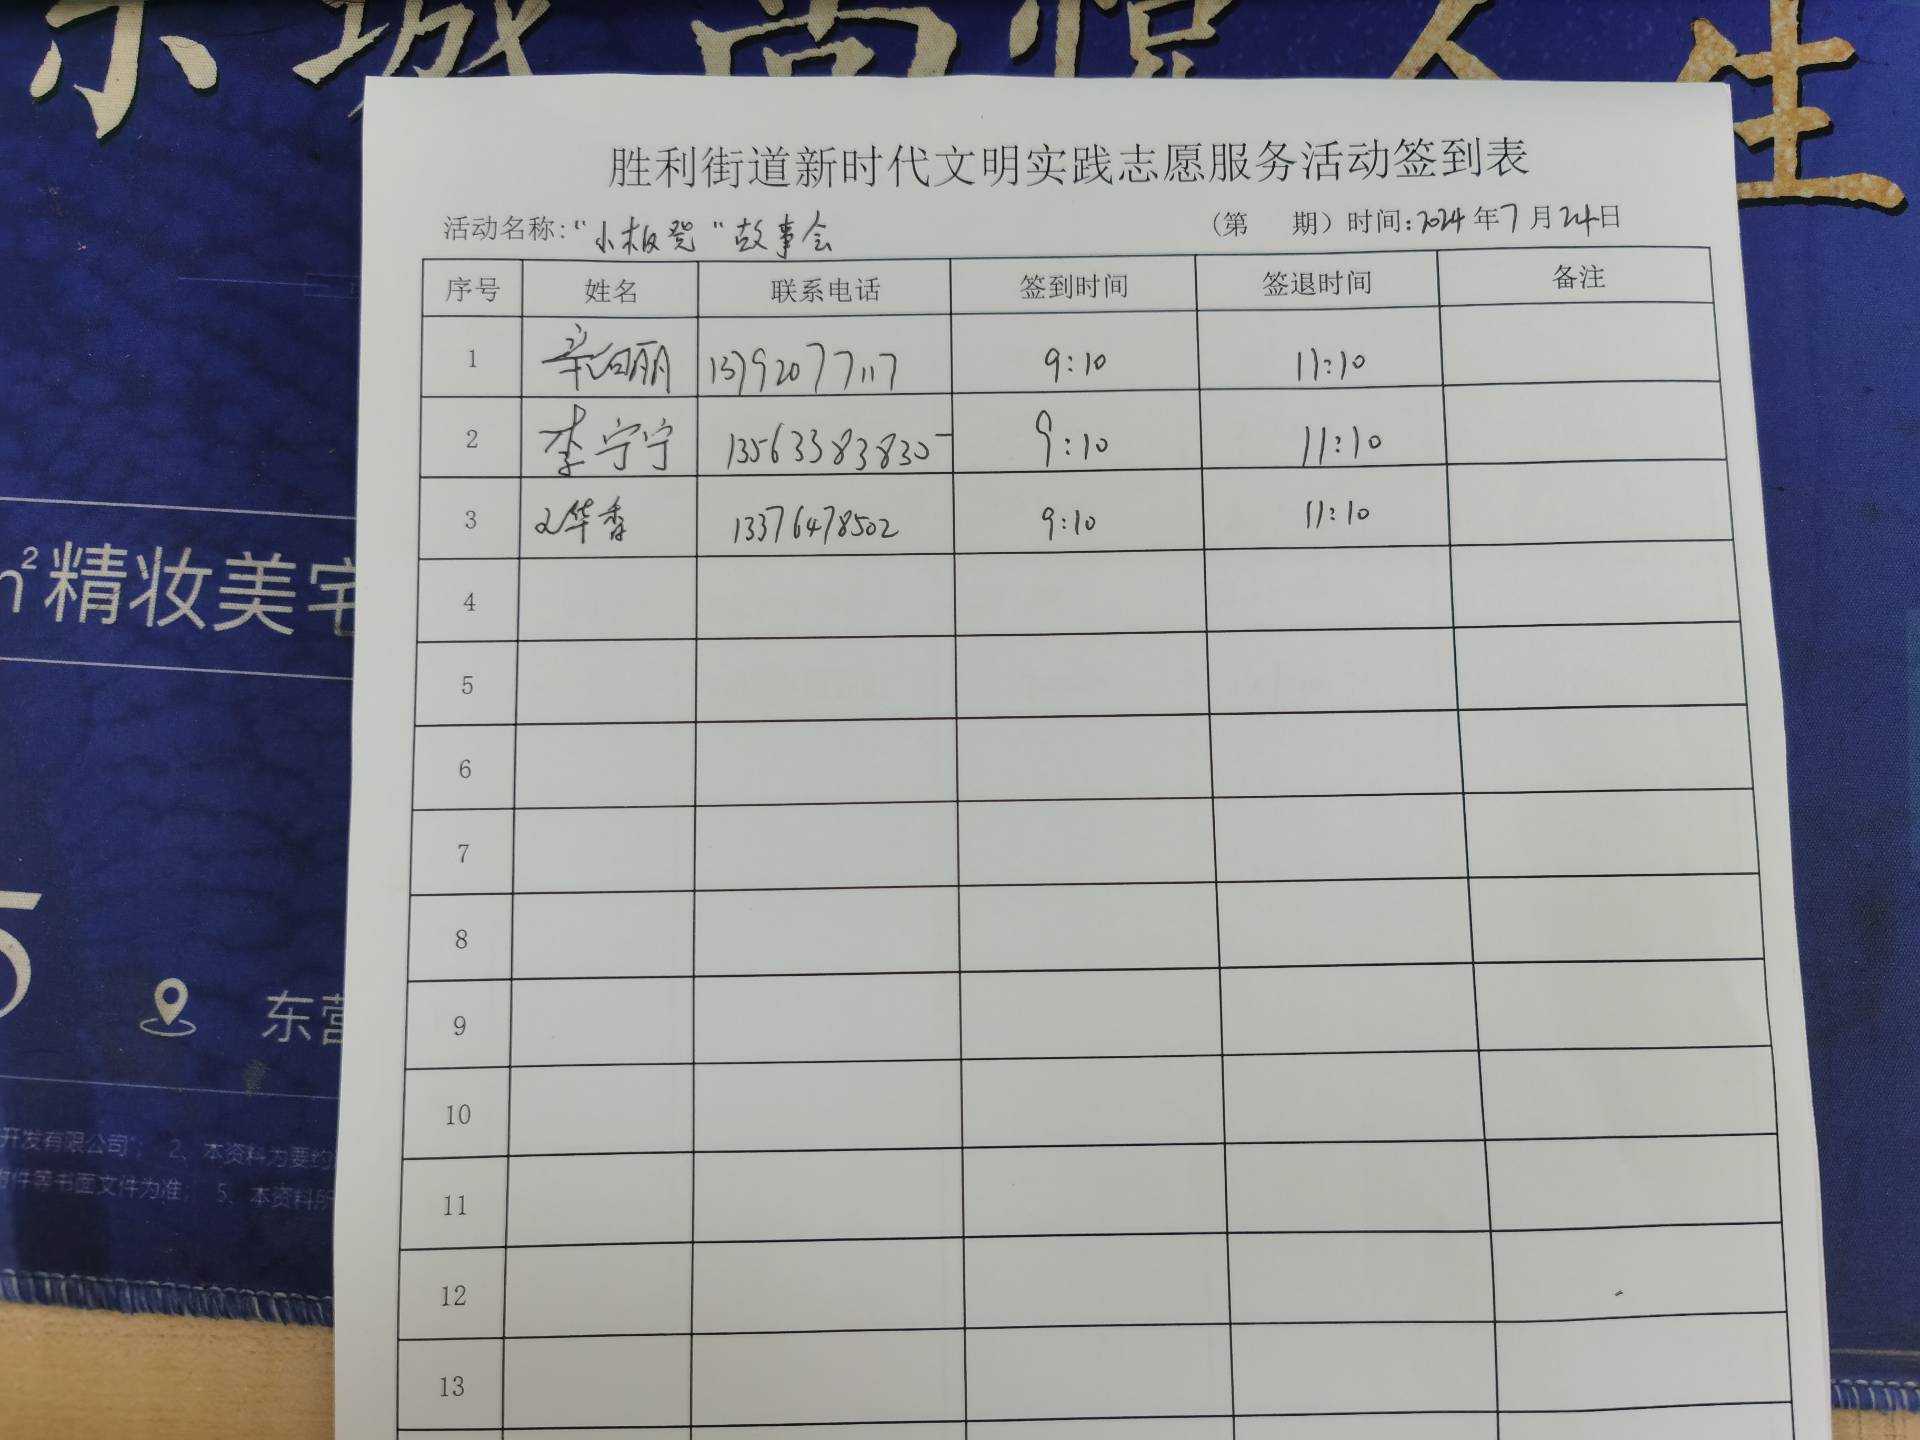 东城 尚 人生
胜利街道新时代文明实践志愿服务活动签到表
活动名称:“小板凳”故事会 （第 期）时间:2024年7月24日
序号 姓名 联系电话 签到时间 签退时间 备注
1 丽 13792077117 9:10 11:10
2 李宁宁 13563383835 9:10 11:10
3 华香 13376478502 9:10 11:10
4
5
6
7
8
9
10
11
12
13
m²精妆美宅
5
东营
开发有限公司”； 2、本资料为要约
附件等书面文件为准； 5、本资料所